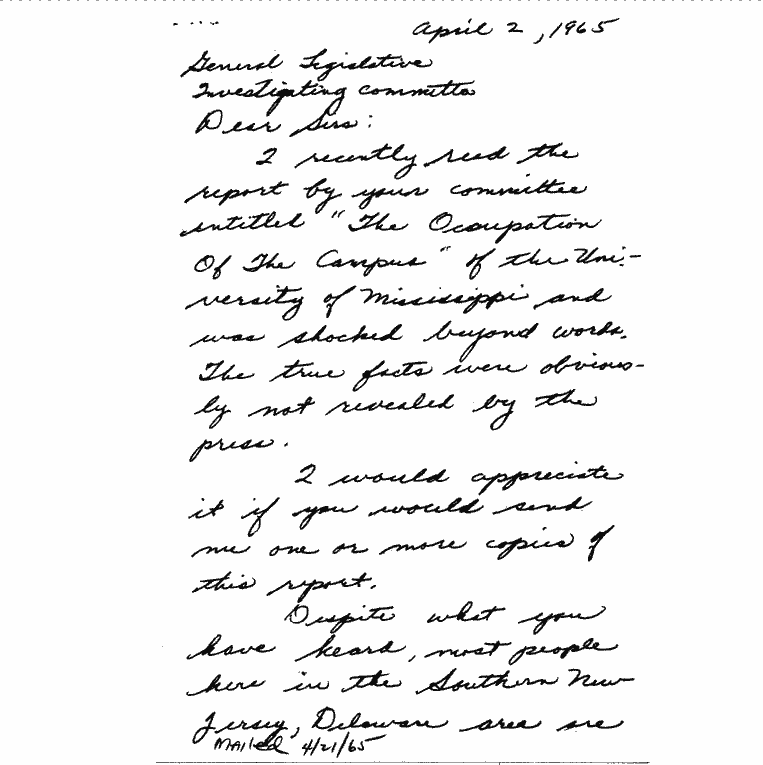 April 2, 1965
General Legislative
Investigating committee
Dear Sirs:
I recently read the
report by your committee
entitled "The Occupation
Of The Campus" of the Uni-
versity of Mississippi and
was shocked beyond words.
The true facts were obvious-
ly not revealed by the
press.
I would appreciate
it if you would send
me one or more copies of
this report.
Despite what you
have heard, most people
here in the Southern New
Jersey, Delaware area are
Mailed 4/21/65